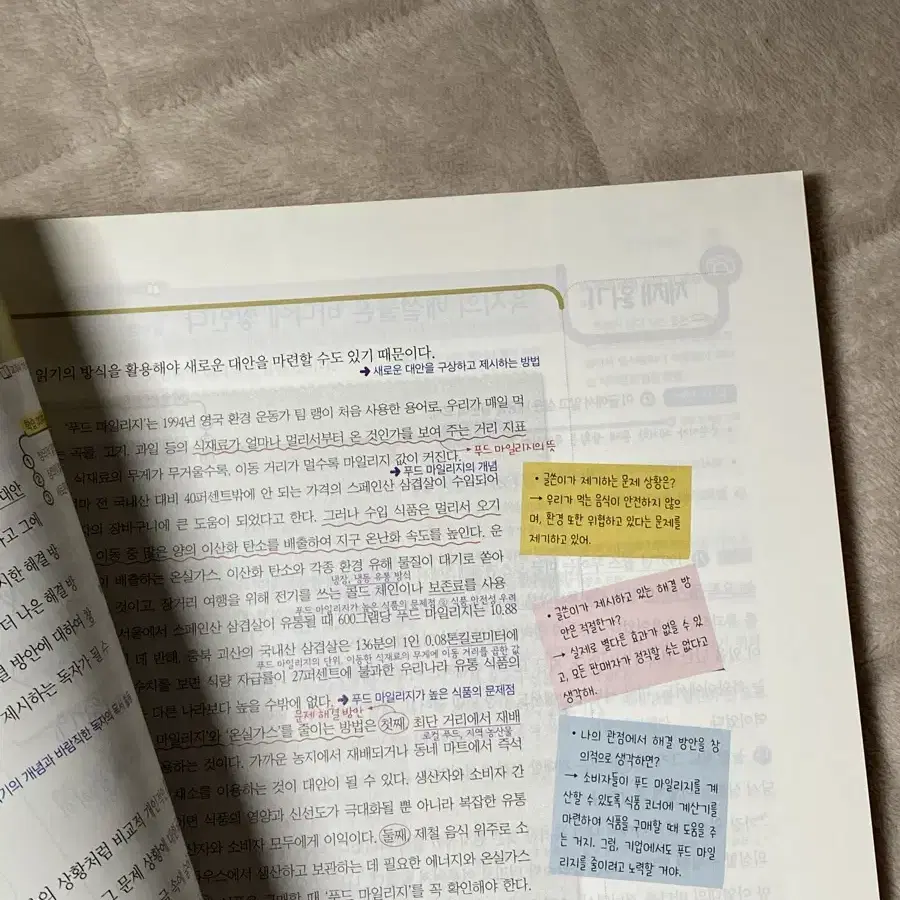 읽기의 방식을 활용해야 새로운 대안을 마련할 수도 있기 때문이다.
➜ 새로운 대안을 구상하고 제시하는 방법
'푸드 마일리지'는 1994년 영국 환경 운동가 팀 랭이 처음 사용한 용어로, 우리가 매일 먹
는 곡물, 고기, 과일 등의 식재료가 얼마나 멀리서부터 온 것인가를 보여 주는 거리 지표
➜ 푸드 마일리지의 뜻
식재료의 무게가 무거울수록, 이동 거리가 멀수록 마일리지 값이 커진다.
➜ 푸드 마일리지의 개념
마 전 국내산 대비 40퍼센트밖에 안 되는 가격의 스페인산 삼겹살이 수입되어
의 장바구니에 큰 도움이 되었다고 한다. 그러나 수입 식품은 멀리서 오기
이동 중 많은 양의 이산화 탄소를 배출하여 지구 온난화 속도를 높인다. 운
이 배출하는 온실가스, 이산화 탄소와 각종 환경 유해 물질이 대기로 쏟아
냉장, 냉동 유통 방식
것이고, 장거리 여행을 위해 전기를 쓰는 콜드 체인이나 보존료를 사용
푸드 마일리지가 높은 식품의 문제점 ② 식품 안전성 우려
서울에서 스페인산 삼겹살이 유통될 때 600그램당 푸드 마일리지는 10.88
데 반해, 충북 괴산의 국내산 삼겹살은 136분의 1인 0.08톤킬로미터에
푸드 마일리지의 단위, 이동한 식재료의 무게에 이동 거리를 곱한 값
수치를 보면 식량 자급률이 27퍼센트에 불과한 우리나라 유통 식품의
다른 나라보다 높을 수밖에 없다.
➜ 푸드 마일리지가 높은 식품의 문제점
문제 해결 방안
마일리지'와 '온실가스'를 줄이는 방법은 첫째, 최단 거리에서 재배
로컬 푸드, 지역 농산물
용하는 것이다. 가까운 농지에서 재배되거나 동네 마트에서 즉석
채소를 이용하는 것이 대안이 될 수 있다. 생산자와 소비자 간
면 식품의 영양과 신선도가 극대화될 뿐 아니라 복잡한 유통
산자와 소비자 모두에게 이익이다. 둘째, 제철 음식 위주로 소
우스에서 생산하고 보관하는 데 필요한 에너지와 온실가스
구매할 때 '푸드 마일리지'를 꼭 확인해야 한다.
• 글쓴이가 제기하는 문제 상황은?
→ 우리가 먹는 음식이 안전하지 않으
며, 환경 또한 위협하고 있다는 문제를
제기하고 있어.
• 글쓴이가 제시하고 있는 해결 방
안은 적절한가?
→ 실제로 별다른 효과가 없을 수 있
고, 모든 판매자가 정직할 수는 없다고
생각해.
• 나의 관점에서 해결 방안을 창
의적으로 생각하면?
→ 소비자들이 푸드 마일리지를 계
산할 수 있도록 식품 코너에 계산기를
마련하여 식품을 구매할 때 도움을 주
는 거지. 그럼, 기업에서도 푸드 마일
리지를 줄이려고 노력할 거야.
대안
하고 그에
시한 해결 방
더 나은 해결 방
결 방안에 대하여
제시하는 독자가 될 수
기의 개념과 바람직한 독자의
의 상황처럼 비교적 개인적인
그 문제 상황에 대한